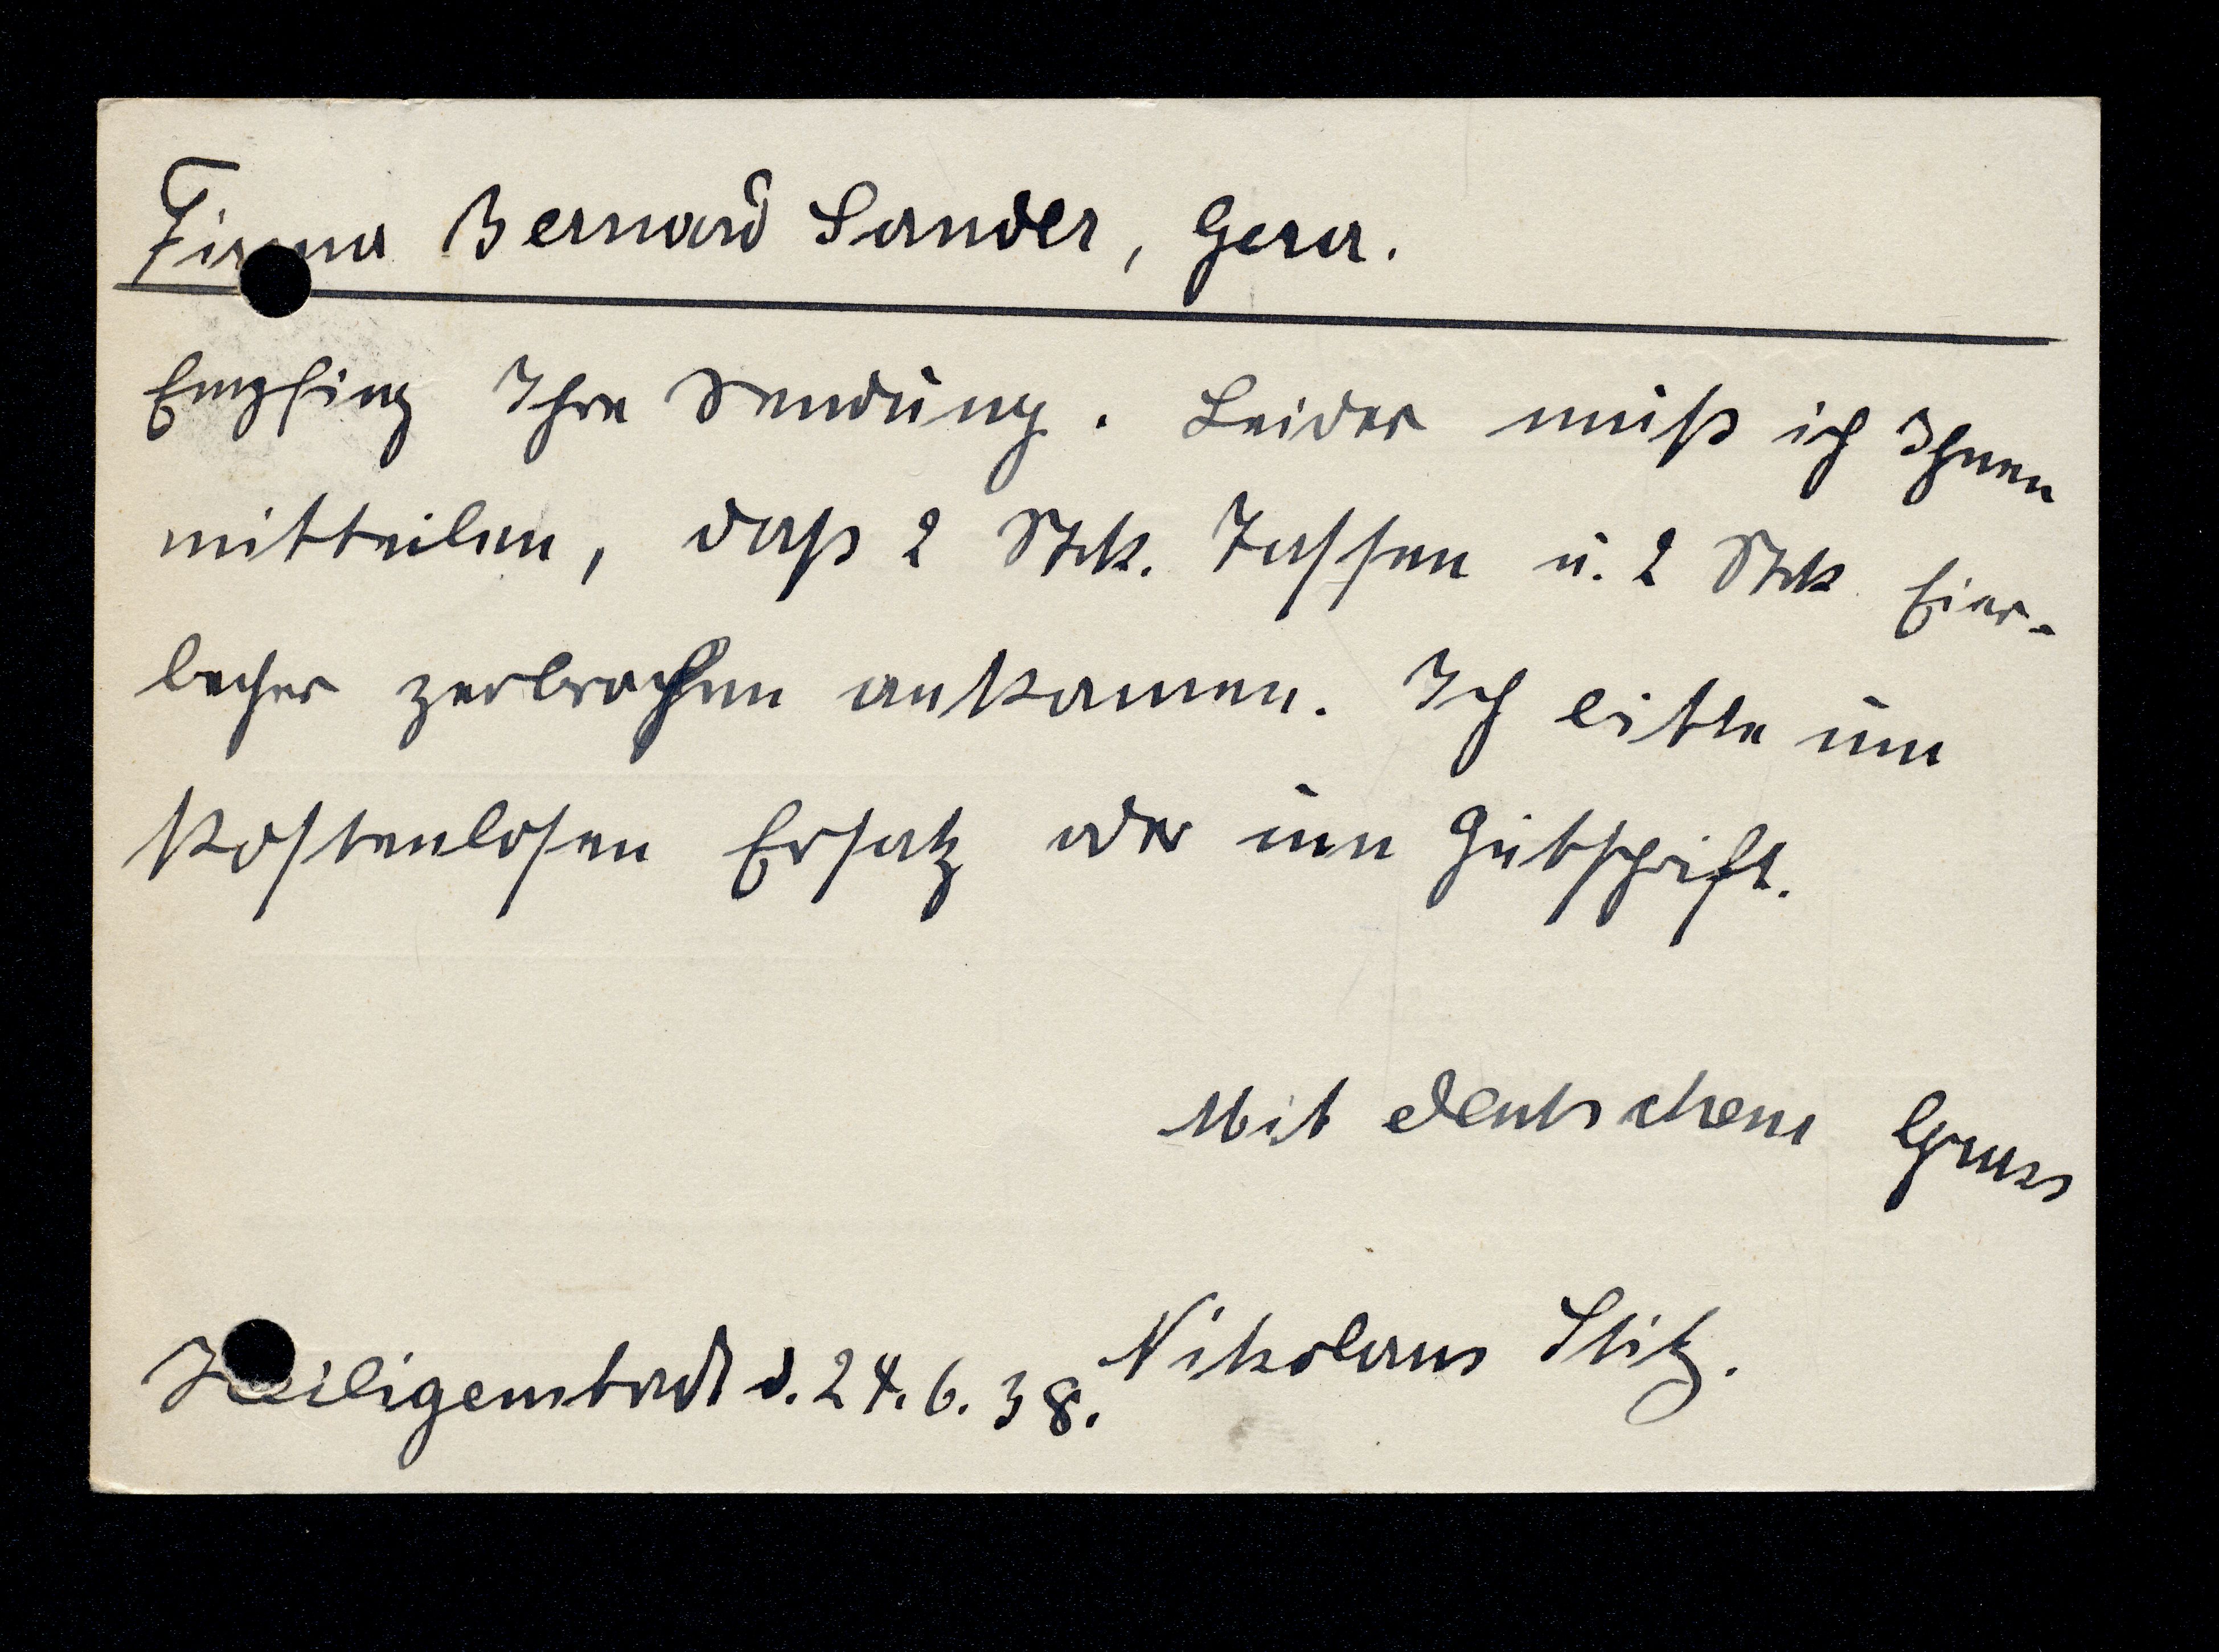 Firma Bernard Sander, Gera.
Empfing Ihre Sendung. Leider muß ich Ihnen
mitteilen, daß 2 Stck. Tassen u. 2 Stck Eier-
becher zerbrochen ankamen. Ich bitte um
kostenlosen Ersatz oder um Gutschrift.
Mit deutschem Gruss
Nikolaus Stitz.
Heiligenstadt d. 24. 6. 38.